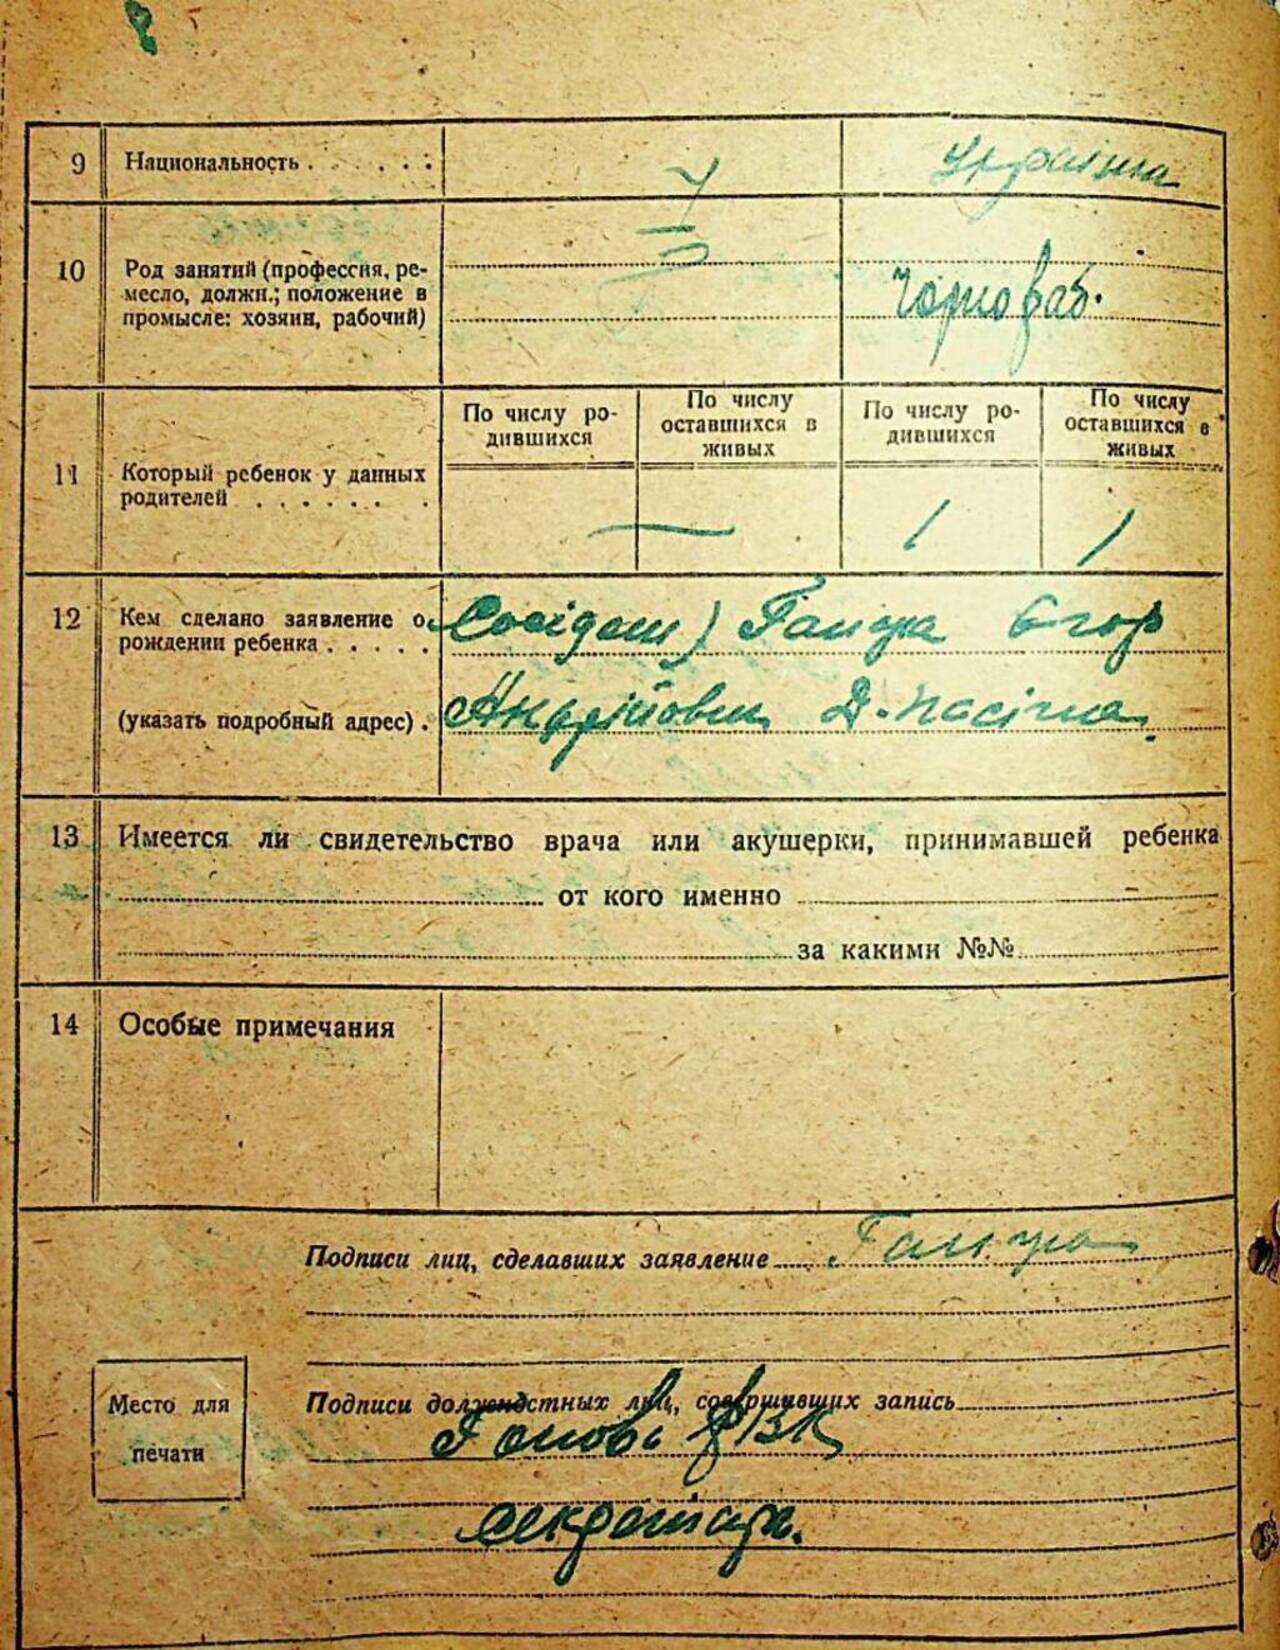 9 Национальность . . . . . . Українка
10 Род занятий (профессия, ре-
месло, должн.; положение в
промысле: хозяин, рабочий)
Чорнораб.
По числу ро-
дившихся
По числу
оставшихся в
живых
По числу ро-
дившихся
По числу
оставшихся в
живых
11 Который ребенок у данных
родителей . . . . . . .
— 1 1
12 Кем сделано заявление о
рождении ребенка . . . . .
(указать подробный адрес) .
Сосідом) Ганжа Єгор
Андрійович Д-Пасічна
13 Имеется ли свидетельство врача или акушерки, принимавшей ребенка
от кого именно
за какими №№
14 Особые примечания
Подписи лиц, сделавших заявление
Место для
печати
Подписи должностных лиц, совершивших запись
Голова
секретарь.